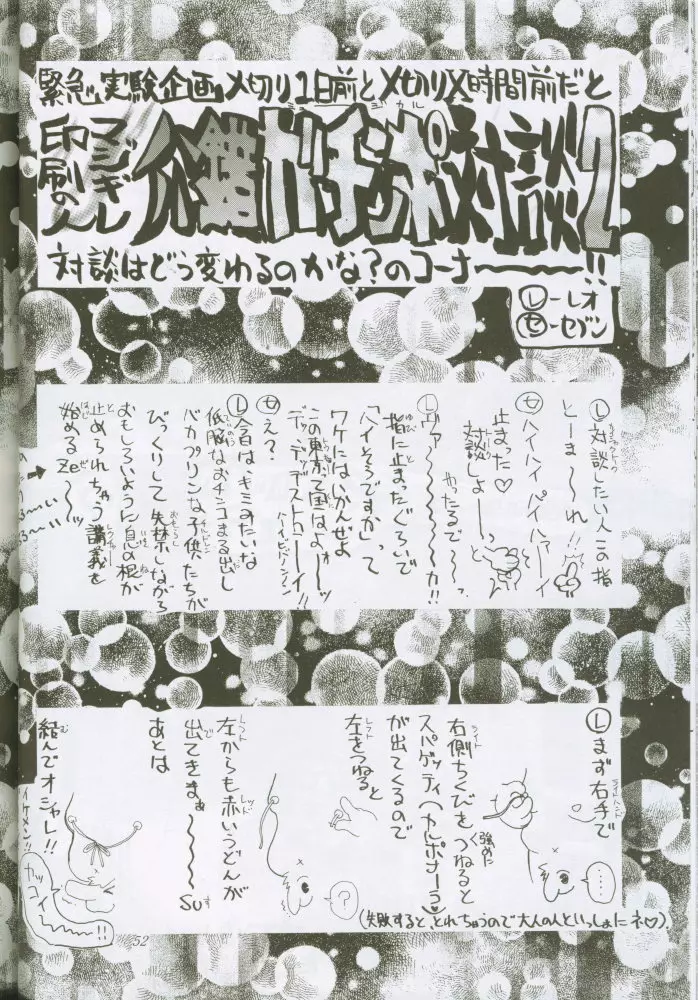 緊急実験企画〆切り1日前と〆切りX時間前だと
マジギレ
印刷の人
ガチンポ対談2
対談はどう変わるのかな?のコーナー〜〜!!
Ⓛーレオ
㋝ーセブン
Ⓛ対談したい人この指
とーま〜〜れ!!
㋝ハイハイパイハァーイ
止まった♡
対談しよ——
Ⓛヴァ〜〜〜〜カ!!
やったるで〜〜っ
指に止まったぐらいで
「ハイそうですか」って
ワケにはいかんぜよ
この東方って国はよぉ〜〜ッ
デッ・デッデストローイ!!
㋝え?
Ⓛ今日はキミみたいな
低脳なおチンコまる出し
バカプリンな子供たちが
びっくりして失禁しながら
おもしろいように息の根が
止められちゃう講義を
始めるZe〜〜ッ
Ⓛまず右手で
ライトハンド
右側ちくびをつねると
ライト
強めた
スパゲッティ(カルボナーラ♡
が出てくるので
左をつねると
レフト
左からも赤いうどんが
レフト
レッド
出てきまぁ〜〜〜su
あとは
結んでオシャレ!!
イケメン!!
カッコイ〜〜〜!!
……
?
(失敗すると、とれちゃうので大人の人といっしょにネ♡)
52